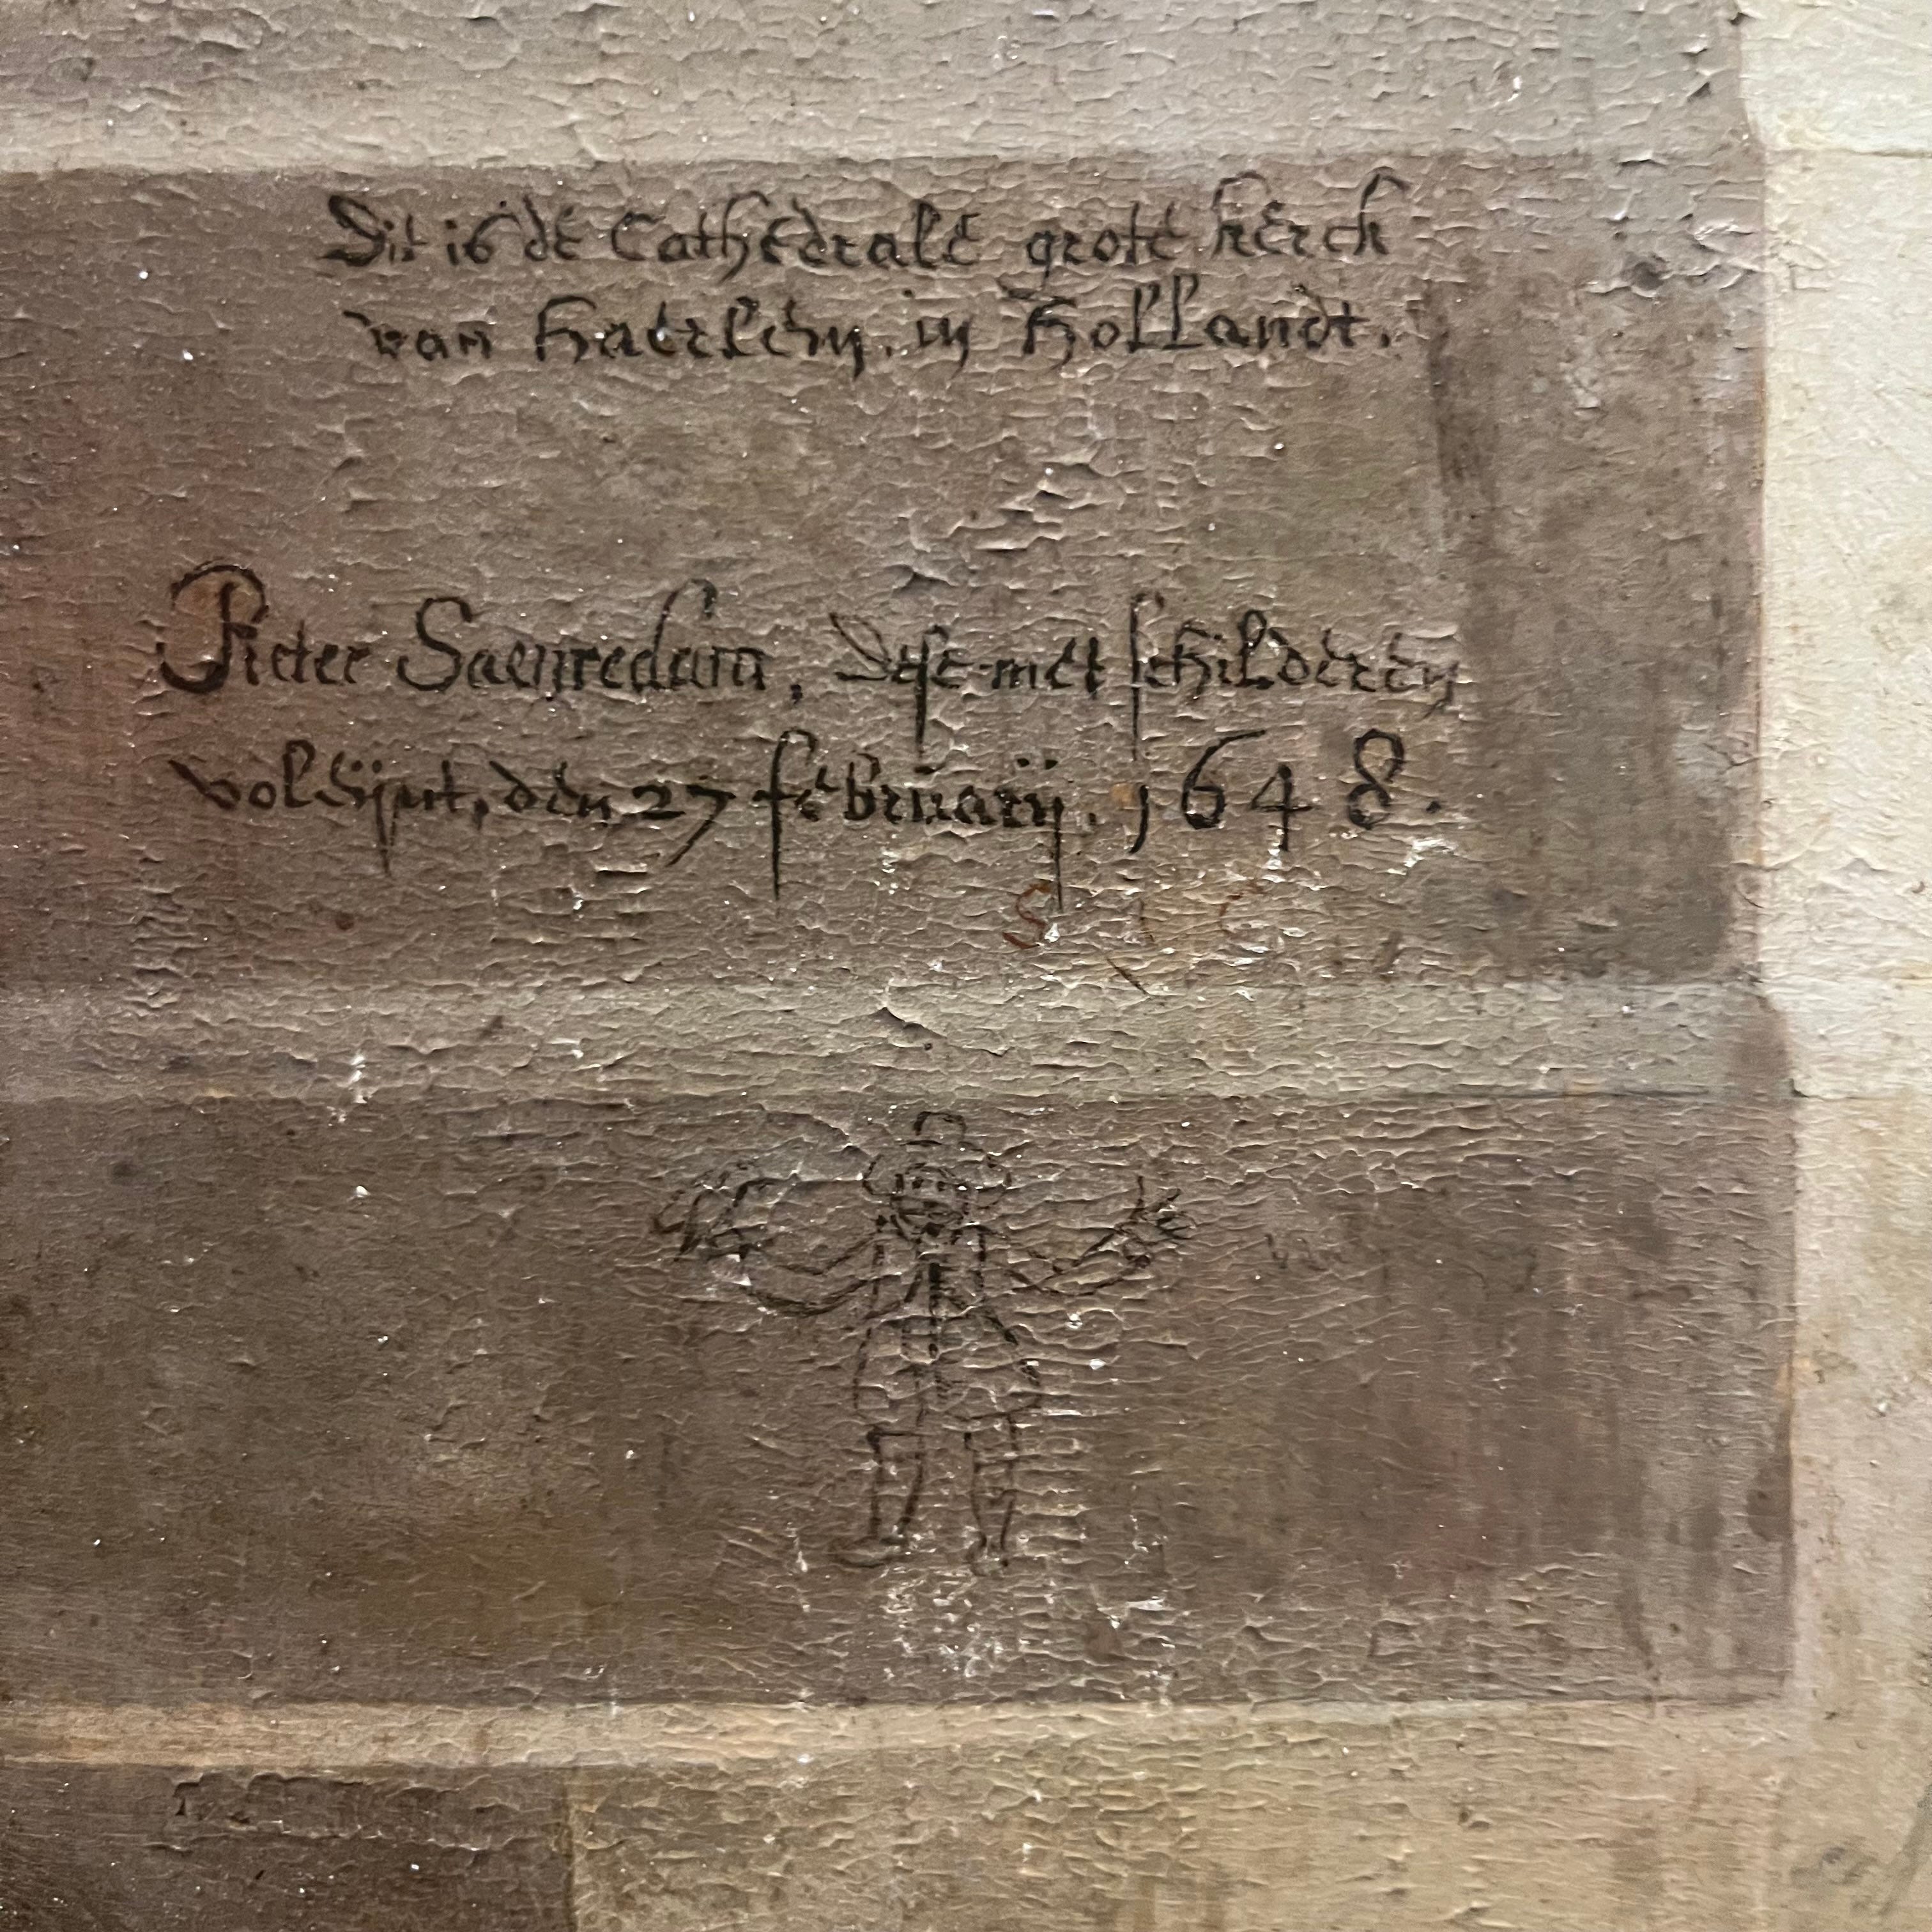 Dit is de Cathedrale grote kerck
van Haerlem, in Hollandt.
Pieter Saenredam, dese met schilderen
voleijnt, den 27 februarij. 1648.